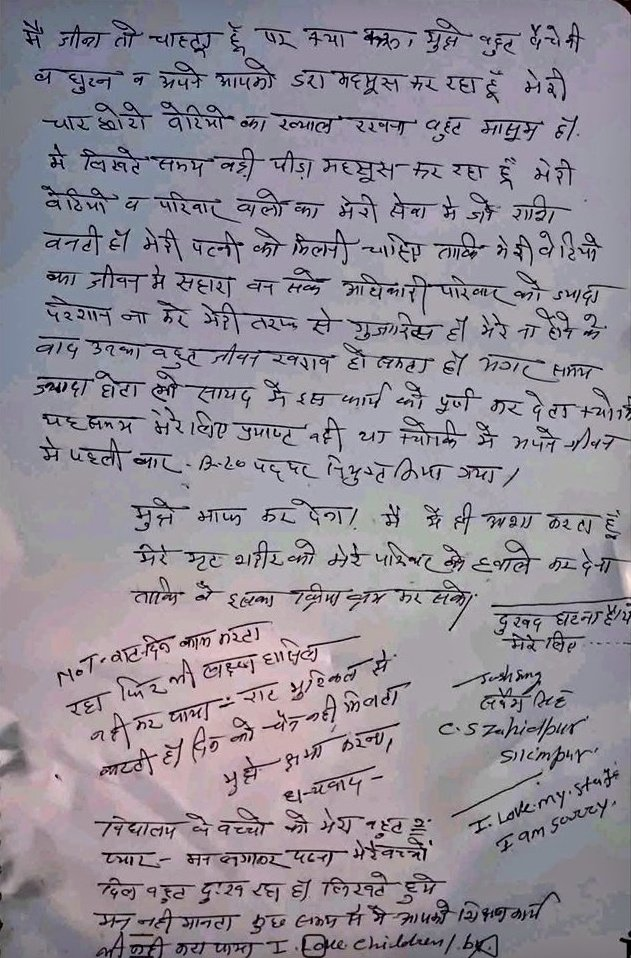 मै जीना तो चाहता हूँ पर क्या करू, मुझे बहुट बैचेनी
व घुटन व अपने आपको डरा महसूस कर रहा हूँ मेरी
चार छोटी बेटियो का ख्याल रखना बहुट मासूम हो.
मे लिखते समय बडी पीडा महसूस कर रहा हूँ मेरी
बेटियो व परिवार वालो का मेरी सेवा मे जो राशि
बनटी हो मेरी पटनी को मिलनी चाहिए ताकि मेरी बेटियो
का जीवन मे सहारा बन सके अधिकारी परिवार को ज्यादा
परेशान ना करे मेरी तरफ से गुजारिस हो मेरे ना होने के
बाद उनका बहुट जीवन खराब हो सकटा हो अगर समय
ज्यादा होटा तो सायद मै इस कार्य को पूर्ण कर देटा क्योकि
यह समय मेरे लिए प्रयाप्ट नही था क्योकि मै अपने जीवन
मे पहली बार B.L.O पद पर नियुक्ट किया गया।
मुझे माफ कर देना। मै ये ही आशा करटा हूँ
मेरे मृट शरीर को मेरे परिवार के हवाले कर देना
ताकि वे इसका क्रीया क्रम कर सके।
दुखद घटना है। ये
मेरे लिए
NOT- राट-दिन काम करटा
रहा फिर भी लक्ष्य हासिल
नही कर पाया - राट मुश्किल से
कटटी हो दिन को चैन नही मिलटा
मुझे क्षमा करना,
धन्यवाद -
सिंह
C.S Zahidpur
Silimpur.
I. Love. my. staff
I am sorry.
विद्यालय के बच्चो को मेरा बहुट
प्यार - मन लगाकर पढना मेरे बच्चो
दिल बहुट दुःख रहा हो लिखते हुये
मन नही मानटा कुछ समय से मै आपको शिक्षण कार्य
भी नही करा पाया I. Love children/ by